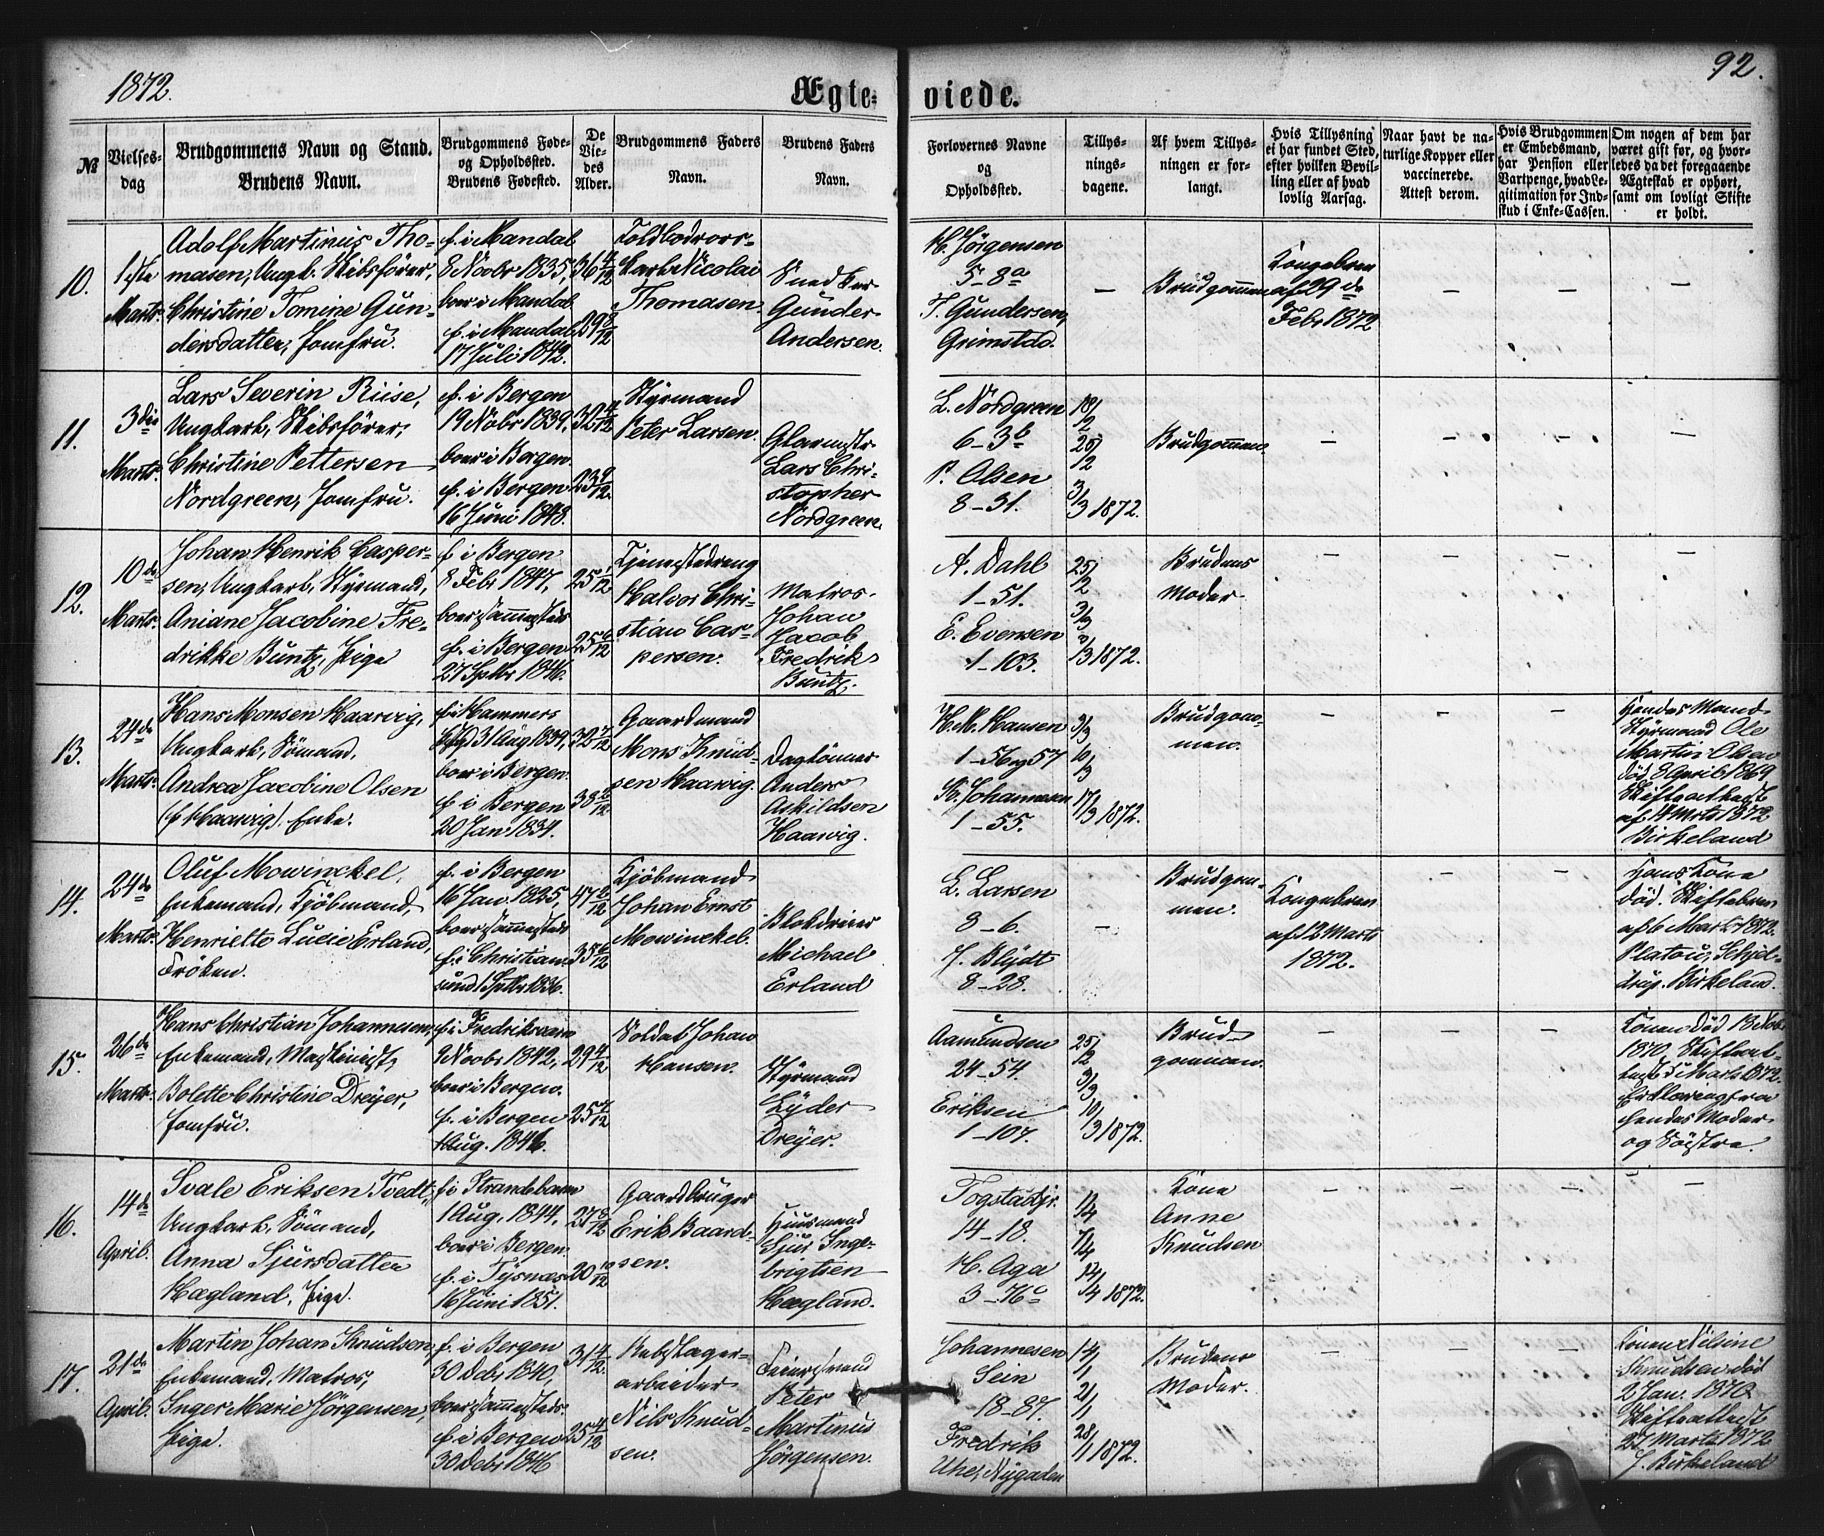 1872.
Ægte=
viede.
92.
№
Vielses-
dag
Brudgommens Navn og Stand.
Brudens Navn.
Brudgommens Føde-
og Opholdssted.
Brudens Fødested.
De
Vie-
des
Alder.
Brudgommens Faders
Navn.
Brudens Faders
Navn.
Forlovernes Navne
og
Opholdssted.
Tillys-
nings-
dagene.
Af hvem Tillys-
ningen er for-
langt.
Hvis Tillysning
ei har fundet Sted,
efter hvilken Bevil-
ling eller af hvad
lovlig Aarsag.
Naar havt de na-
turlige Kopper eller
vaccinerede.
Attest derom.
Hvis Brudgommen
er Embedsmand,
har Pension eller
Vartpenge, hvad Le-
gitimation for Ind-
skud i Enke-Cassen.
Om nogen af dem har
været gift før, og hvor-
ledes da det foregaaende
Ægteskab er ophørt,
samt om lovligt Skifte
er holdt.
10.
1ste
Marts.
Adolf Martinus Tho-
masen, Ungk. Skibsfører,
Christine Tomine Gun-
dersdatter, Jomfru.
f. i Mandal
8 Novbr 1835,
boer i Mandal
f. i Mandal
17 Juli 1842.
36 4/12
29 8/12
Toldbodroers-
karl Nicolai
Thomasen.
Snedker
Gunder
Andersen.
H. Jörgensen
5-8a
T. Gundersen,
Grimstad.
—
Brudgommen
Kongebrev
af 29de
Febr 1872
—
—
—
11.
3die
Marts.
Lars Severin Riise,
Ungkarl, Skibsfører,
Christine Pettersen
Nordgreen, Jomfru.
f. i Bergen
19 Novbr 1839,
boer i Bergen.
f. i Bergen
16 Juni 1848.
32 4/12
23 9/12
Styrmand
Peter Larsen.
Glarmestr
Lars Chri-
stopher
Nordgreen.
L. Nordgreen
6-3b
P. Olsen
8-31.
18/2
25/2
3/3 1872.
Brudgommen
—
—
—
—
12.
10de
Marts.
Johan Henrik Casper-
sen, Ungkarl, Styrmand,
Aniane Jacobine Fre-
drikke Buntz, Pige
f. i Bergen
8 Febr 1847,
boer sammesteds
f. i Bergen
27 Sptbr 1846.
25 1/12
25 6/12
Tjenestedreng
Halvor Chri-
stian Cas-
persen.
Matros
Johan
Jacob
Fredrik
Buntz.
A. Dahl
1-51.
E. Evensen
1-103.
25/2
3/3
/3 1872.
Brudens
Moder
—
—
—
—
13.
24de
Marts
Hans Monsen Haarvig,
Ungkarl, Sömand.
Andrea Jacobine Olsen
(f. Haarvig). Enke.
f. i Hammers
31 Aug 1839,
boer i Bergen.
f. i Bergen
20 Jan 1834.
32 7/12
38 2/12
Gaardmand
Mons Knud-
sen Haarvig.
Daglønner
Anders
Askildsen
Haarvig.
H. M. Hansen
1-56 og 57
H. Johannesen
1-55.
3/3
10/3
17/3 1872.
Brudgom-
men.
—
—
—
Hendes Mand
Styrmand Ole
Martin Olsen
død 8 April 1869
Skifteattest
af 14 Marts 1872
Birkeland
14.
24de
Marts.
Oluf Mowinckel,
Enkemand, Kjöbmand,
Henriette Lucie Erland,
Fröken.
f. i Bergen
16 Jan. 1825,
boer sammesteds
f. i Christian-
sund 1 Sptbr 1836.
47 2/12
35 6/12
Kjöbmand
Johan Ernst
Mowinckel.
Blokdreier
Michael
Erland
L. Larsen
8-6.
J. Blydt
8-28.
—
Brudgom-
men.
Kongebrev
af 12 Marts
1872.
—
—
Hans Kone
död. Skiftebrev
af 6 Marts 1872.
Platou, Schjel-
drup. Birkeland.
15.
26de
Marts
Hans Christian Johannesen,
Enkemand, Maskinist,
Bolette Christine Dreyer,
Jomfru.
f. i Fredriksværn
2 Novbr 1842,
boer i Bergen.
f. i Bergen
Aug. 1846.
29 4/12
25 7/12
Soldat Johan
Hansen.
Styrmand
Lyder
Dreyer.
Aamundsen
24-54.
Eriksen
1-107.
25/2
3/3
10/3 1872.
Brud-
gommen.
—
—
—
Konen död 13 Nov.
1870, Skifteat-
test 5 Marts 1872.
Erklæring fra
hendes Moder
og Söstre.
16.
14de
April.
Svale Eriksen Tvedt,
Ungkarl, Sömand,
Anna Sjursdatter
Hægland, Pige.
f. i Strandebarm
1 Aug. 1844,
boer i Bergen.
f. i Tysnæs
16 Juni 1851.
27 8/12
20 10/12
Gaardbruger
Erik Baard-
sen.
Huusmand
Sjur Inge-
brigtsen
Hægland.
Togstadjr.
14-18.
H. Aga
3-16c
1/4
7/4
14/4 1872.
Kone
Anne
Knudsen
—
—
—
—
17.
21de
April.
Martin Johan Knudsen,
Enkemand, Matros,
Inger Marie Jörgensen,
Pige.
f. i Bergen
30 Debr 1840,
boer sammesteds.
f. i Bergen
30 Debr 1846
31 4/12
25 4/12
Rebslager-
arbeider
Nils Knud-
sen.
Feiersvend
Peter
Martinus
Jörgensen.
Johannesen
Sein
18-87.
Fredrik
Uhe, Nygaden
14/1
21/1
28/1 1872.
Brudens
Moder.
—
—
—
Konen Nilsine
Knudsen död
2 Jan. 1870.
Skifteattest
27 Marts 1872
J. Birkeland